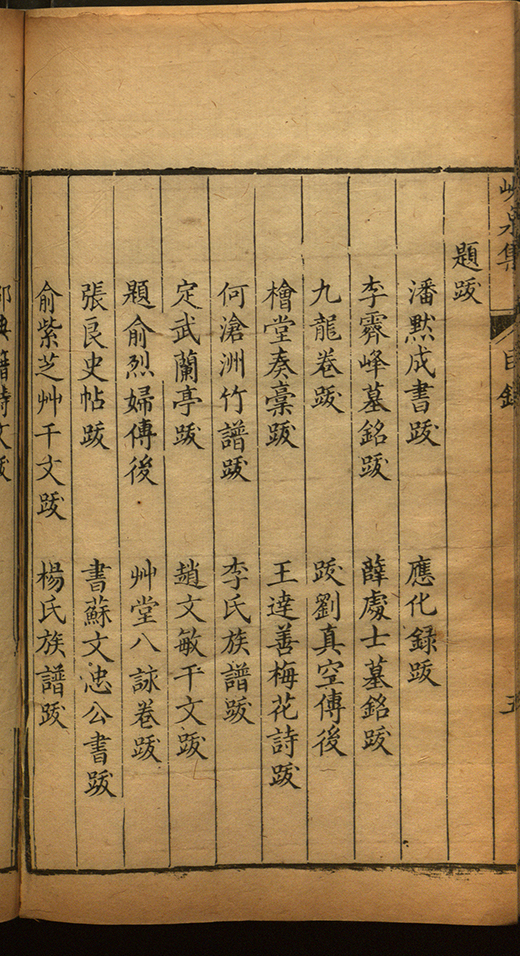 題跋
潘默成書跋　應化録跋
李霽峰墓銘跋　薛處士墓銘跋
九龍卷跋　跋劉真空傳後
檜堂奏稾跋　王達善梅花詩跋
何滄洲竹譜跋　李氏族譜跋
定武蘭亭跋　趙文敏千文跋
題俞烈婦傳後　艸堂八詠卷跋
張良史帖跋　書蘇文忠公書跋
俞紫芝艸千文跋　楊氏族譜跋